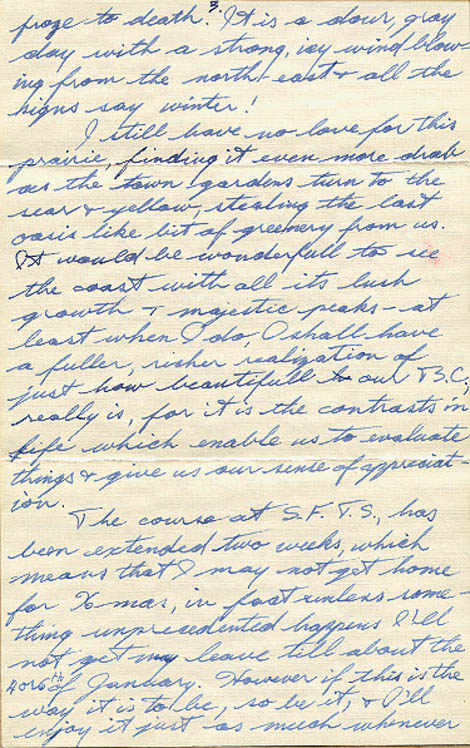 3.
froze to death. It is a dour, gray
day with a strong, icy wind blow-
ing from the north-east & all the
signs say winter!
I still have no love for this
prairie, finding it even more drab
as the town gardens turn to the
sear & yellow, stealing the last
oasis like bit of greenery from us.
It would be wonderfull to see
the coast with all its lush
growth & majestic peaks - at
least when I do, I shall have
a fuller, richer realization of
just how beautifull our B.C,
really is, for it is the contrasts in
life which enable us to evaluate
things & give us our sense of appreciat-
ion.
The course at S.F.T.S., has
been extended two weeks, which
means that I may not get home
for X-mas, in fact unless some-
thing unprecedented happens I'll
not get my leave till about the
4 or 6th of January. However if this is the
way it is to be, so be it, & I'll
enjoy it just as much whenever